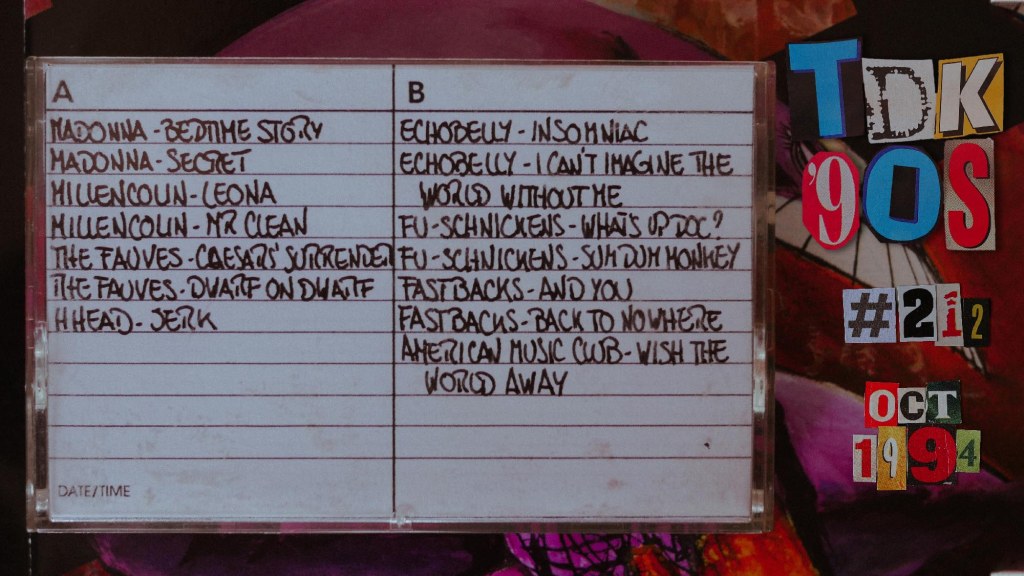 A
MADONNA - BEDTIME STORY
MADONNA - SECRET
MILLENCOLIN - LEONA
MILLENCOLIN - MR CLEAN
THE FAUVES - CAESARS' SURRENDER
THE FAUVES - DWARF ON DWARF
HHEAD - JERK
DATE/TIME
B
ECHOBELLY - INSOMNIAC
ECHOBELLY - I CAN'T IMAGINE THE
WORLD WITHOUT ME
FU-SCHNICKENS - WHATS UP DOC?
FU-SCHNICKENS - SUM DUM MONKEY
FASTBACKS - AND YOU
FASTBACKS - BACK TO NOWHERE
AMERICAN MUSIC CLUB - WISH THE
WORLD AWAY
TDK
'90S
#212
OCT
1994